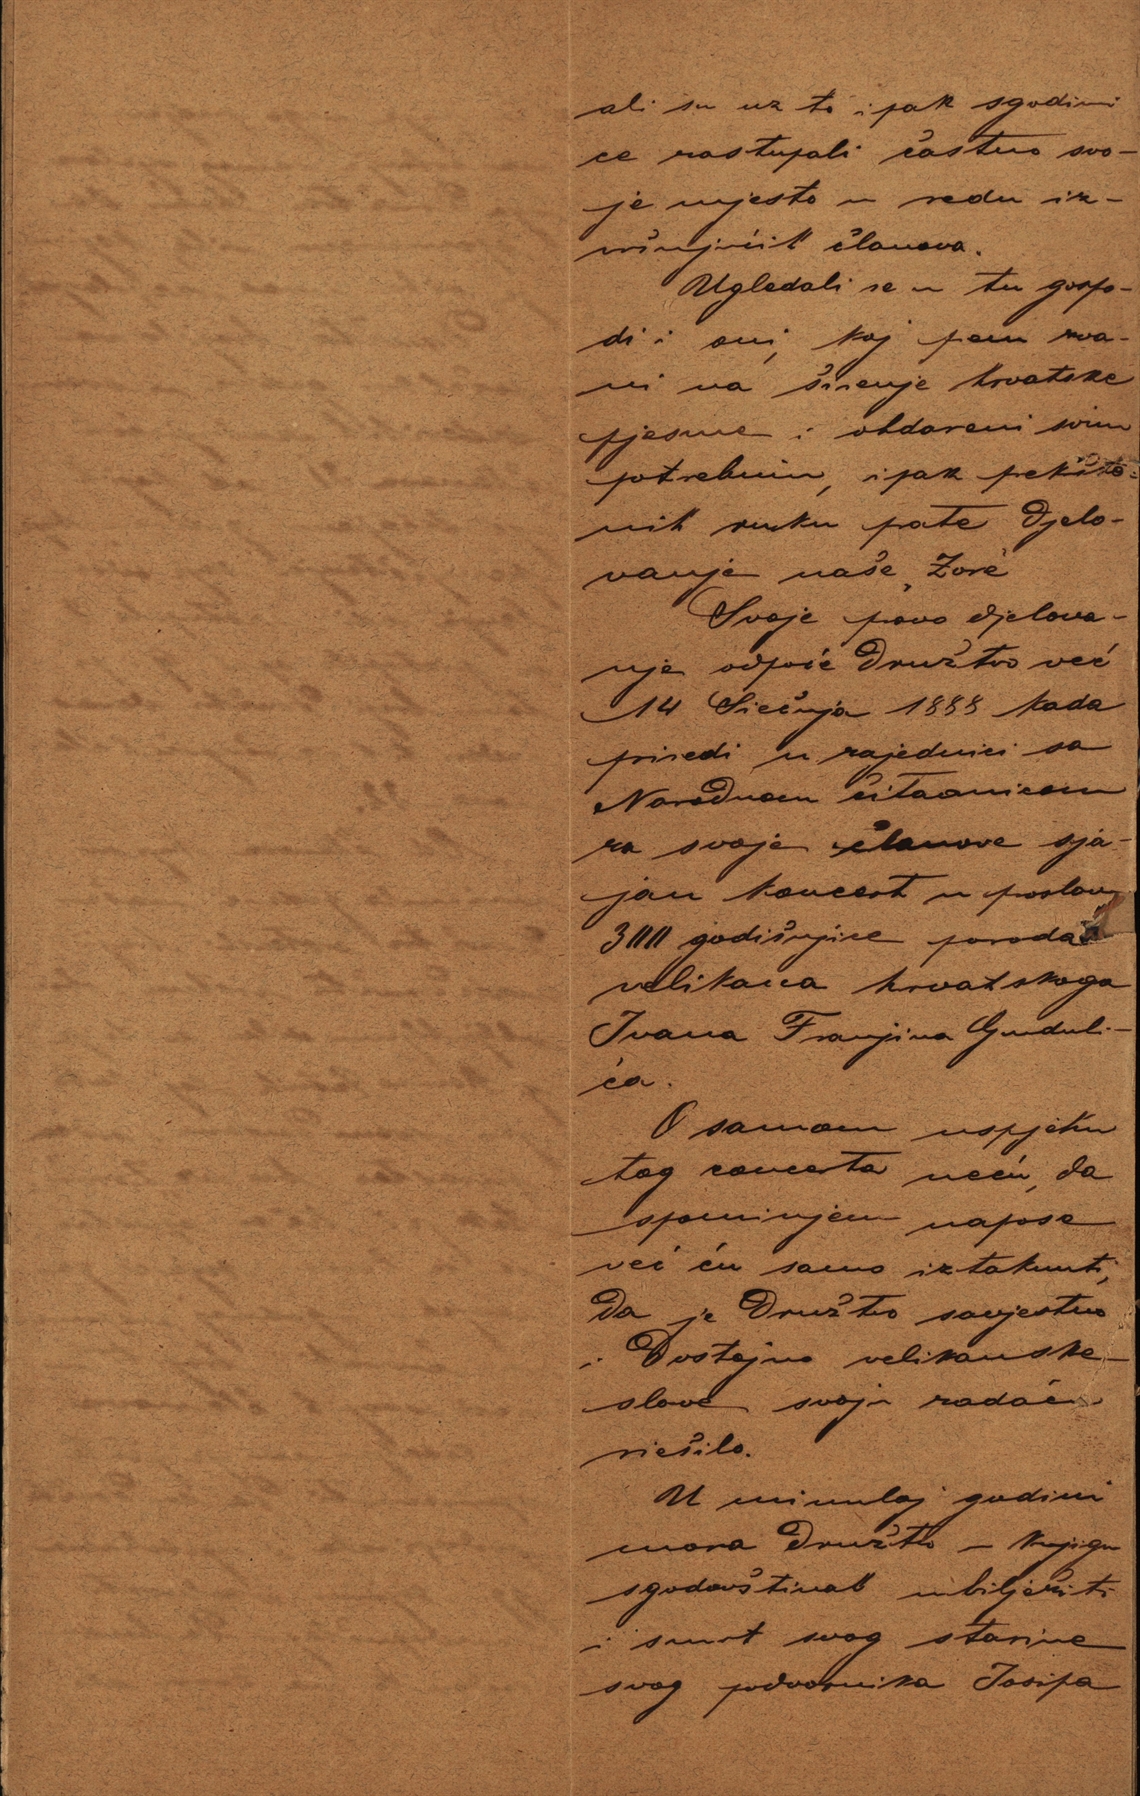 ali su uz to ipak sgodimi
ce zastupali častno svo-
je mjesto u redu iz-
vršujućih članova.
Ugledali se u tu gospo-
di i oni, koj su zva-
ni na širenje hrvatske
pjesme i obdareni svim
potrebnim, ipak prekšto-
nih ruku prate djelo-
vanje naše "Zore"
Svoje pravo djelova-
nje odpoče Družtvo već
14 Siečnja 1888 kada
priredi u zajednici sa
Narodnom čitaonicom
za svoje članove sja-
jan koncert u proslavu
300 godišnjice poroda
velikana hrvatskoga
Ivana Franjina Gunduli-
ća.
O samom uspjehu
tog concerta neću, da
spominjem napose
već ću samo iztaknuti,
da je Družtvo savjestno
i Dostojno velikanske
slave svoju zadaću
riešilo.
U minuloj godini
mora Družtvo u knjigu
sgodovštinah ubilježiti
i smrt svog starine
svog podvornika Josipa